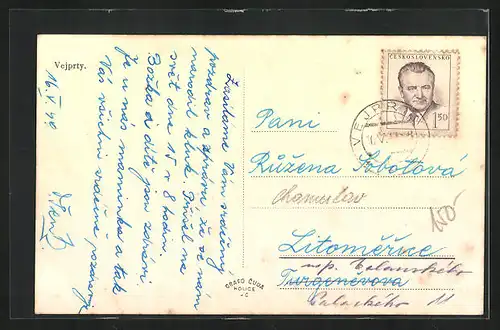 Vejprty.
16/V 49
Zasíláme Vám srdečný
pozdrav a zprávu že se nám
narodil kluk. Přišel na
svět dne 15 v 8 hodin.
Božka i dítě jsou zdraví
Je u nás maminka a tak
Vás všichni vroucně pozdravuj
ČESKOSLOVENSKO
1.50
VEJPRTY
Paní
Růžena Sobotová
Litoměřice
Turgeněvova
Palackého 11
150
GRAFO ČUDA
HOLICE